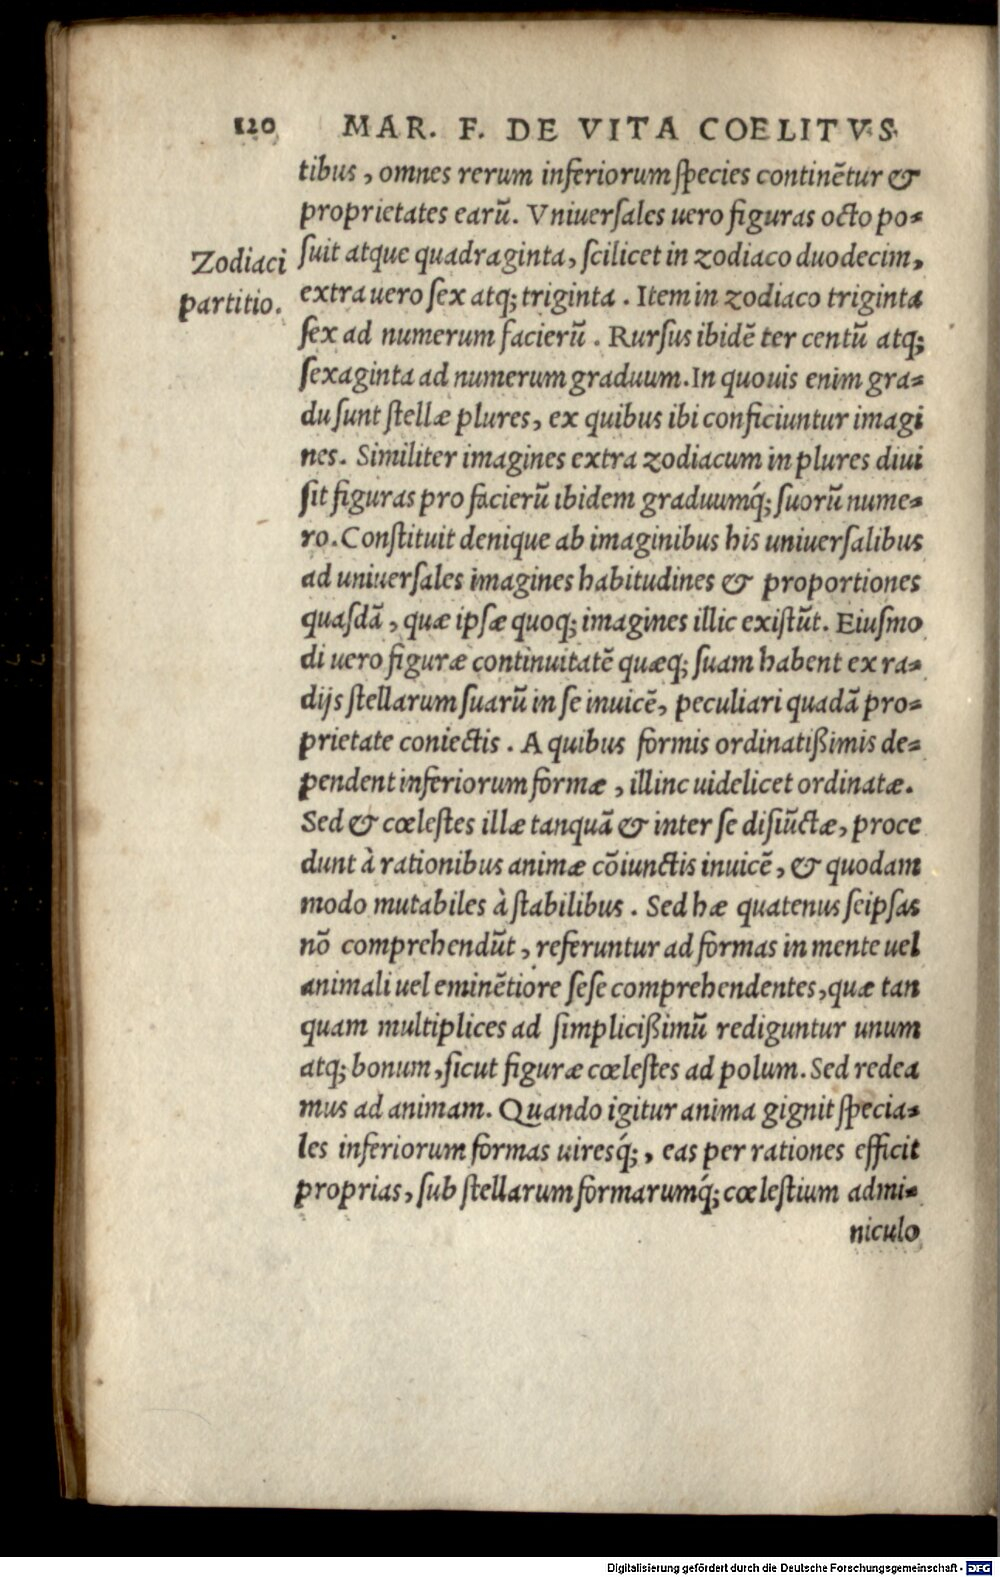 120 MAR. F. DE VITA COELITVS
tibus, omnes rerum inferiorum species continẽtur &
proprietates earũ. Vniuersales uero figuras octo po-
Zodiaci partitio.
suit atque quadraginta, scilicet in zodiaco duodecim,
extra uero sex atq; triginta. Item in zodiaco triginta
sex ad numerum facierũ. Rursus ibidẽ ter centũ atq;
sexaginta ad numerum graduum. In quouis enim gra-
du sunt stellæ plures, ex quibus ibi conficiuntur imagi
nes. Similiter imagines extra zodiacum in plures diui
sit figuras pro facierũ ibidem graduumq́; suorũ nume-
ro. Constituit denique ab imaginibus his uniuersalibus
ad uniuersales imagines habitudines & proportiones
quasdã, quæ ipsæ quoq; imagines illic existũt. Eiusmo
di uero figuræ continuitatẽ quæq; suam habent ex ra-
dijs stellarum suarũ in se inuicẽ, peculiari quadã pro-
prietate coniectis. A quibus formis ordinatißimis de-
pendent inferiorum formæ, illinc uidelicet ordinatæ.
Sed & cœlestes illæ tanquã & inter se disiũctæ, proce
dunt à rationibus animæ cõiunctis inuicẽ, & quodam
modo mutabiles à stabilibus. Sed hæ quatenus seipsas
nõ comprehendũt, referuntur ad formas in mente uel
animali uel eminẽtiore sese comprehendentes, quæ tan
quam multiplices ad simplicißimũ rediguntur unum
atq; bonum, sicut figuræ cœlestes ad polum. Sed redea
mus ad animam. Quando igitur anima gignit specia-
les inferiorum formas uiresq́;, eas per rationes efficit
proprias, sub stellarum formarumq́; cœlestium admi-
niculo
Digitalisierung gefördert durch die Deutsche Forschungsgemeinschaft - DFG